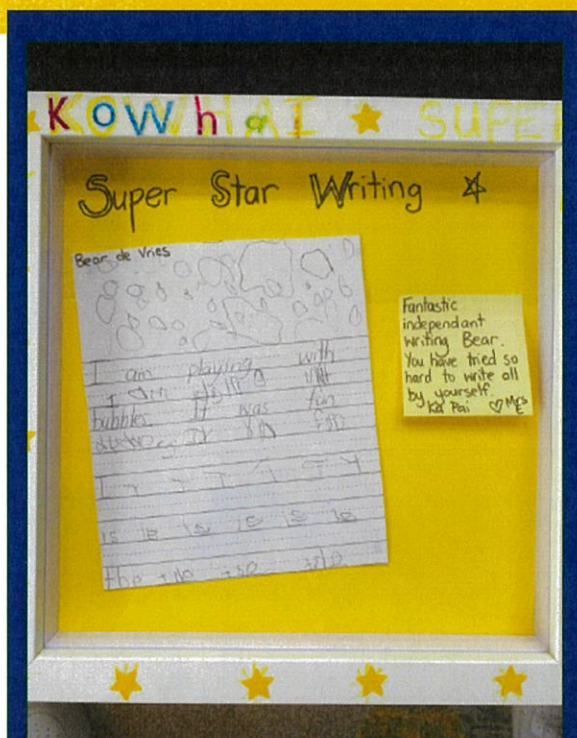 KOWhai SUPE
Super Star Writing
Bear de Vries
I am playing with
I am with
bubbles. It was fun
It fun
I I I I I I I
is is is is is is
the
Fantastic
independant
writing Bear.
You have tried so
hard to write all
by yourself.
Ka Pai Mrs
E